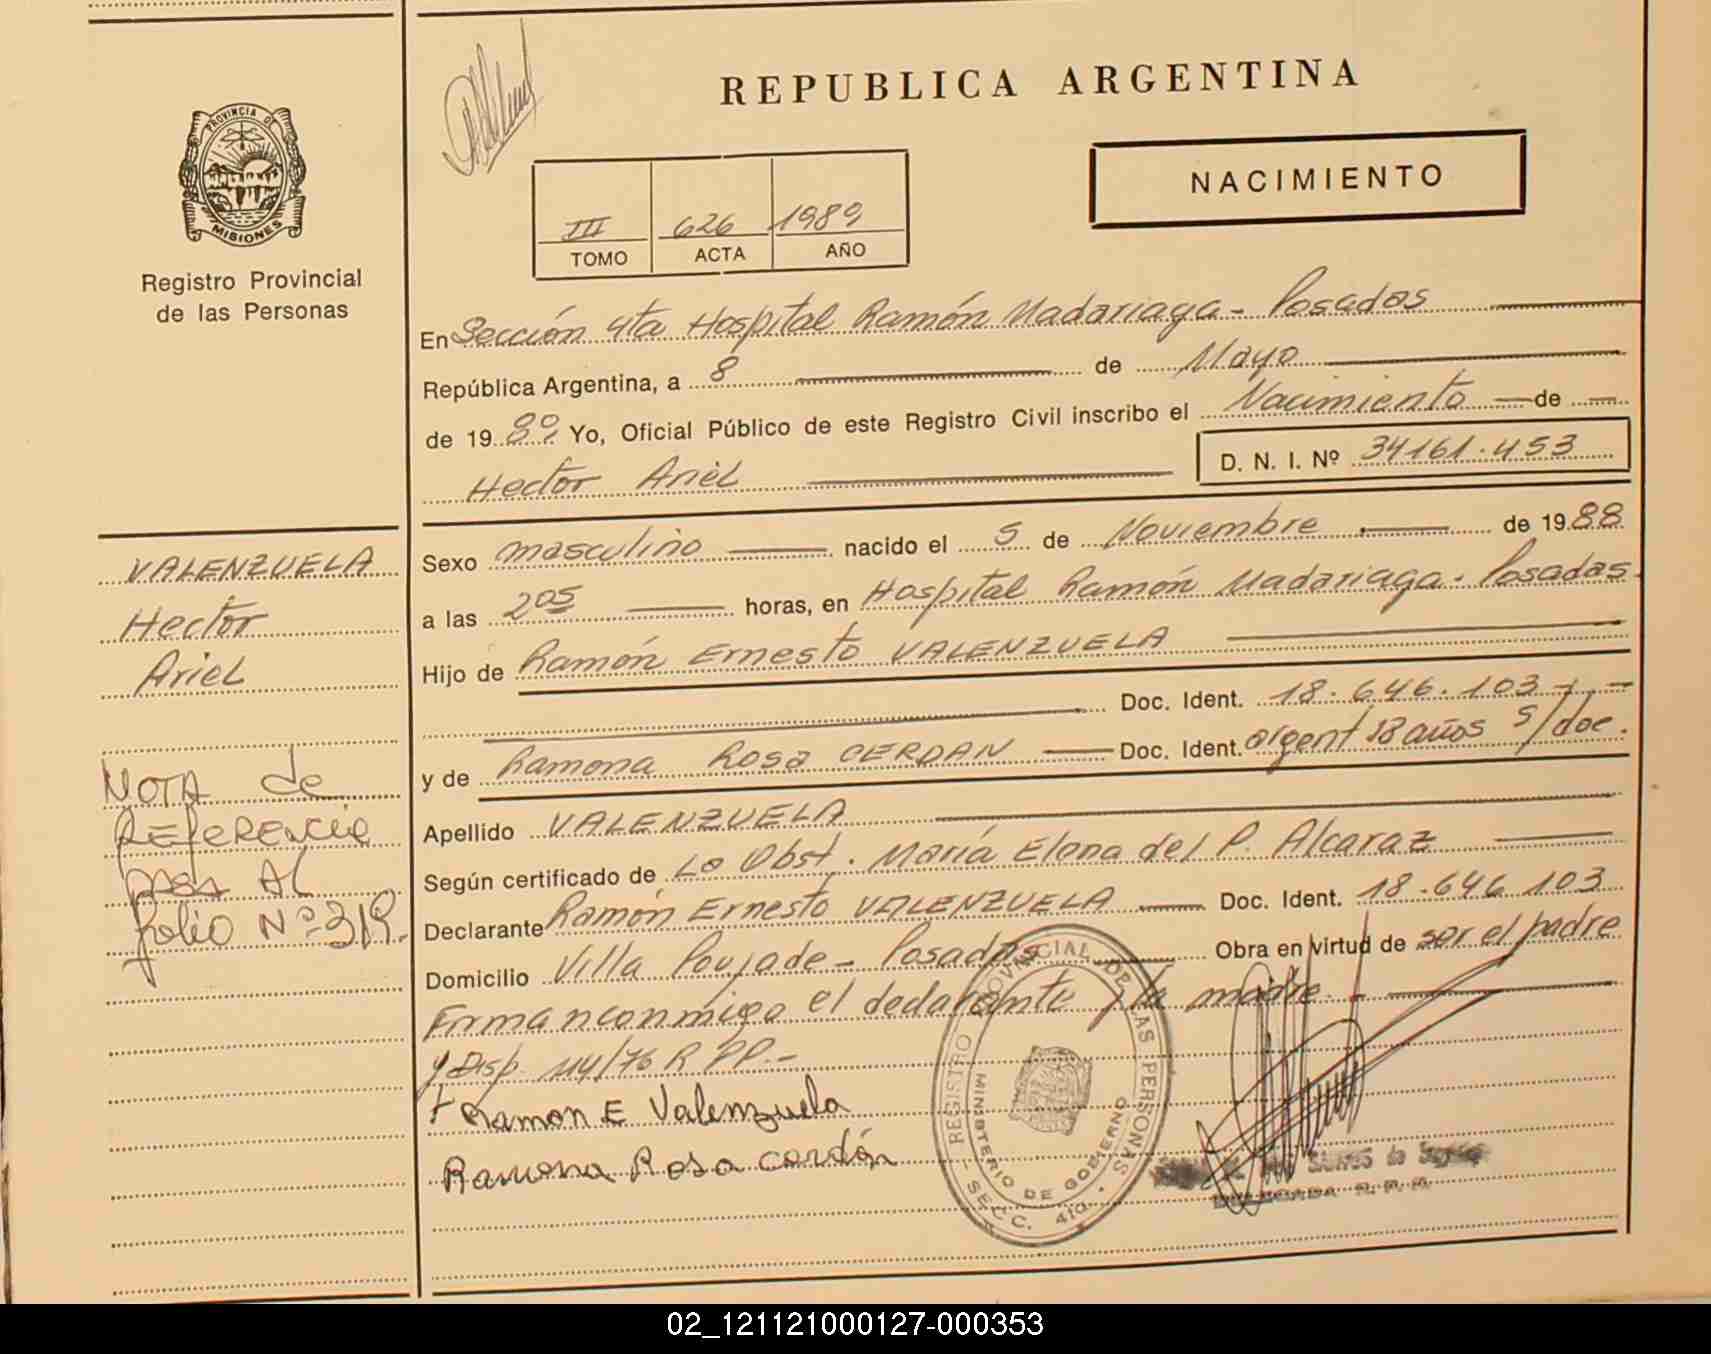 REPUBLICA ARGENTINA
NACIMIENTO
III 626 1989
TOMO ACTA AÑO
PROVINCIA DE
MISIONES
Registro Provincial
de las Personas
En Sección 4ta Hospital Ramón Madariaga - Posadas
República Argentina, a 8 de Mayo
de 1989 Yo, Oficial Público de este Registro Civil inscribo el Nacimiento de
Hector Ariel
D. N. I. Nº 34161.453
Sexo masculino nacido el 5 de Noviembre de 1988
a las 2 05 horas, en Hospital Ramón Madariaga - Posadas.
Hijo de Ramón Ernesto VALENZUELA
Doc. Ident. 18.646.103
y de Ramona Rosa CERDAN Doc. Ident. argent 18 años s/doc.
Apellido VALENZUELA
Según certificado de La Obst. María Elena del P. Alcaraz
Declarante Ramón Ernesto VALENZUELA Doc. Ident. 18.646.103
Domicilio Villa Poujade - Posadas Obra en virtud de ser el padre
Firman conmigo el declarante y la madre. -
y Disp. 114/76 R PP.-
Ramon E Valenzuela
Ramona Rosa cerdán
VALENZUELA
Hector
Ariel
NOTA de
REFERENCIA
PASA AL
folio Nº 319.
REGISTRO PROVINCIAL DE LAS PERSONAS
MINISTERIO DE GOBIERNO
SECC. 4ta.
DELEGADA R.P.P.
02_121121000127-000353